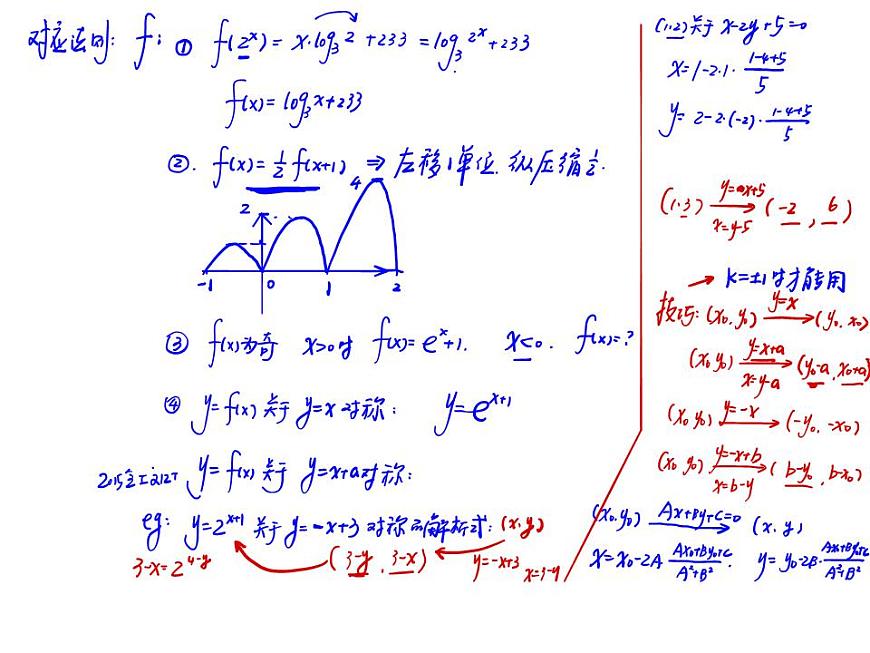 对应法则: f: ① f(2^x) = x·log_3 2 + 233 = log_3 2^x + 233
f(x) = log_3 x + 233
②. f(x) = 1/2 f(x+1) ⇒ 左移1单位. 纵压缩 1/2.
4
2
-1 0 1 2
③ f(x)为奇 x>0时 f(x) = e^x+1. x<0. f(x)=?
④ y=f(x) 关于 y=x 对称: y=e^{x+1}
2015全 y=f(x) 关于 y=x+a对称:
eg: y=2^{x+1} 关于 y=-x+3 对称的解析式: (x,y)
3-x=2^{4-y} (3-y, 3-x) y=-x+3 x=3-y
(1,2)关于 x-2y+5=0
x=1-2·1·(1-4+5)/5
y=2-2·(-2)·(1-4+5)/5
(1,3) y=x+5 x=y-5 (-2, 6)
→ K=±1时才能用
技巧: (x_0, y_0) y=x (y_0, x_0)
(x_0, y_0) y=x+a x=y-a (y_0-a, x_0+a)
(x_0, y_0) y=-x (-y_0, -x_0)
(x_0, y_0) y=-x+b x=b-y (b-y_0, b-x_0)
(x_0, y_0) Ax+By+C=0 (x, y)
x=x_0-2A (Ax_0+By_0+C)/(A²+B²). y=y_0-2B·(Ax_0+By_0+C)/(A²+B²)